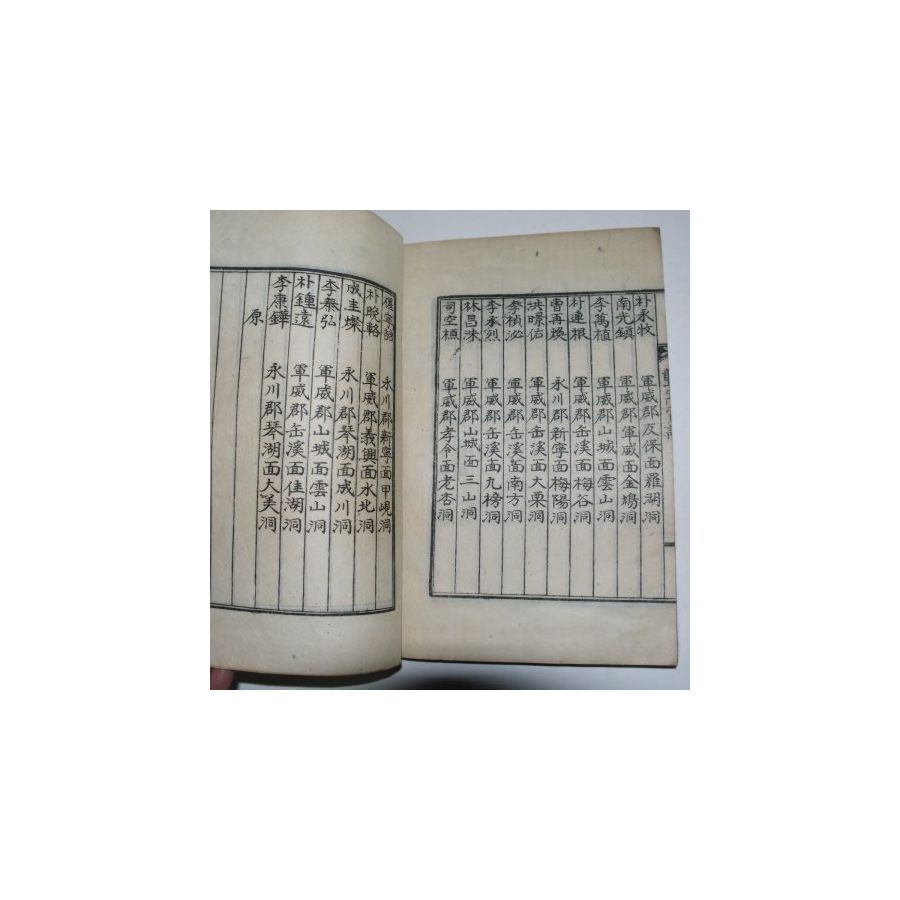 朴永牧 軍威郡友保面羅湖洞
南光鎮 軍威郡軍威面金鳩洞
李萬植 軍威郡山城面雲山洞
朴連根 軍威郡缶溪面梅谷洞
曺再煥 永川郡新寧面梅陽洞
洪暻佑 軍威郡缶溪面大栗洞
李楨泌 軍威郡缶溪面南方洞
李承烈 軍威郡缶溪面九榜洞
林昌洙 軍威郡山城面三山洞
司空 軍威郡孝令面老杏洞
永川郡新寧面甲峴洞
朴晩輅 軍威郡義興面水北洞
成圭燦 永川郡琴湖面成川洞
李泰弘 軍威郡山城面雲山洞
朴鍾遠 軍威郡缶溪面佳湖洞
李康鏵 永川郡琴湖面大美洞
原